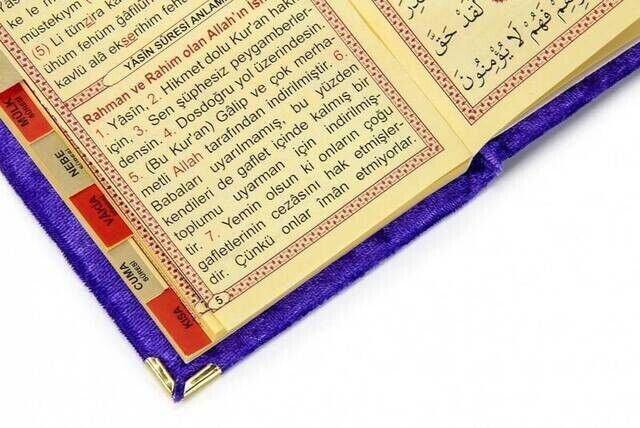 ke le m
müstekıym (5)
(5) Li tünzira kavmen
ühüm fehüm ğâfilûn
kavlü alâ ekserihim fehüm
YÂSİN SÛRESİ ANLAMI
Rahman ve Rahim olan Allah'ın is
1. Yâsîn, 2. Hikmet dolu Kur'an hakkı
için, 3. Sen şüphesiz peygamberler-
densin. 4. Dosdoğru yol üzerindesin.
5. (Bu Kur'an) Gâlip ve çok merha-
metli Allah tarafından indirilmiştir. 6.
Babaları uyarılmamış, bu yüzden
kendileri de gaflet içinde kalmış bir
toplumu uyarman için indirilmiş-
tir. 7. Yemin olsun ki onların çoğu
gafletlerinin cezâsını hak etmişler-
dir. Çünkü onlar îmân etmiyorlar.
5
لَقَدْ حَقَّ
فَهُمْ لَا يُؤْمِنُونَ
MÜLK
SÛRESİ
NEBE
VAKIA
CUMA
SÛRESİ
KISA